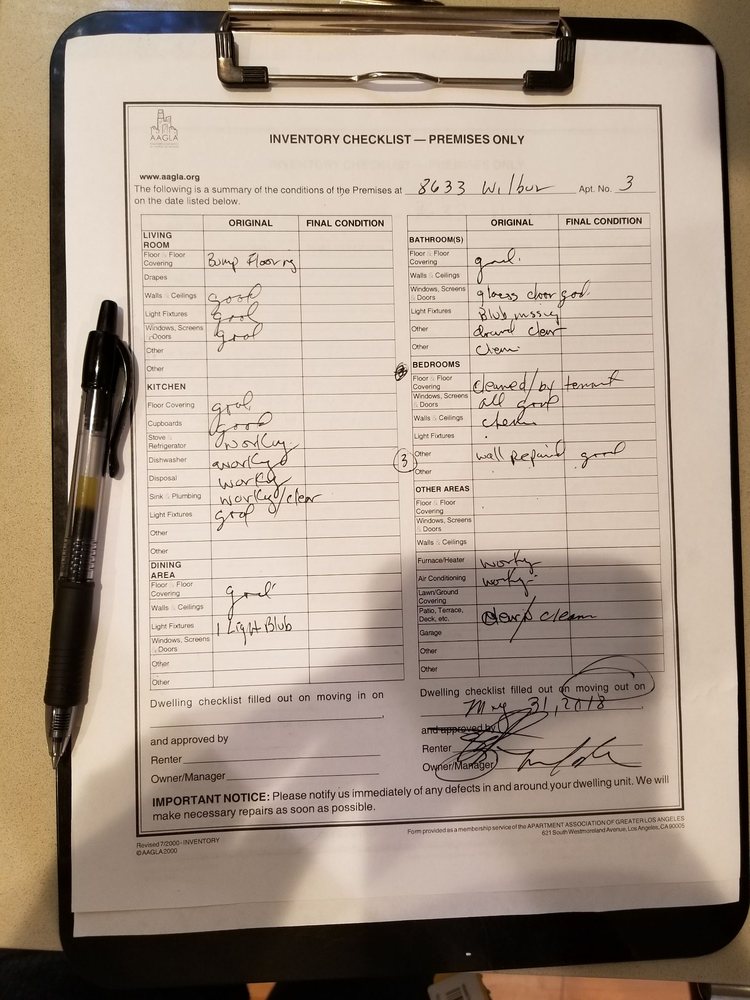 AAGLA
INVENTORY CHECKLIST — PREMISES ONLY
www.aagla.org
The following is a summary of the conditions of the Premises at 8633 Wilbur Apt. No. 3
on the date listed below.
ORIGINAL FINAL CONDITION
LIVING
ROOM
Floor & Floor
Covering Bump Flooring
Drapes
Walls & Ceilings good
Light Fixtures good
Windows, Screens
& Doors good
Other
Other
KITCHEN
Floor Covering good
Cupboards good
Stove &
Refrigerator working
Dishwasher working
Disposal working
Sink & Plumbing working/clear
Light Fixtures good
Other
Other
DINING
AREA
Floor & Floor
Covering good
Walls & Ceilings
Light Fixtures 1 Light Blub
Windows, Screens
& Doors
Other
Other
Dwelling checklist filled out on moving in on
and approved by
Renter
Owner/Manager
ORIGINAL FINAL CONDITION
BATHROOM(S)
Floor & Floor
Covering good.
Walls & Ceilings
Windows, Screens
& Doors glass door good
Light Fixtures Blub missing
Other clear
Other clean
BEDROOMS
Floor & Floor
Covering cleaned/by tenant
Windows, Screens
& Doors all good
Walls & Ceilings clean
Light Fixtures
3 Other wall repaired good
Other
OTHER AREAS
Floor & Floor
Covering
Windows, Screens
& Doors
Walls & Ceilings
Furnace/Heater working
Air Conditioning working
Lawn/Ground
Covering
Patio, Terrace,
Deck, etc. clean
Garage
Other
Other
Dwelling checklist filled out on moving out on
May 31, 2018
and approved by
Renter
Owner/Manager
IMPORTANT NOTICE: Please notify us immediately of any defects in and around your dwelling unit. We will
make necessary repairs as soon as possible.
Revised 7/2000 - INVENTORY
©AAGLA 2000
Form provided as a membership service of the APARTMENT ASSOCIATION OF GREATER LOS ANGELES
621 South Westmoreland Avenue, Los Angeles, CA 90005